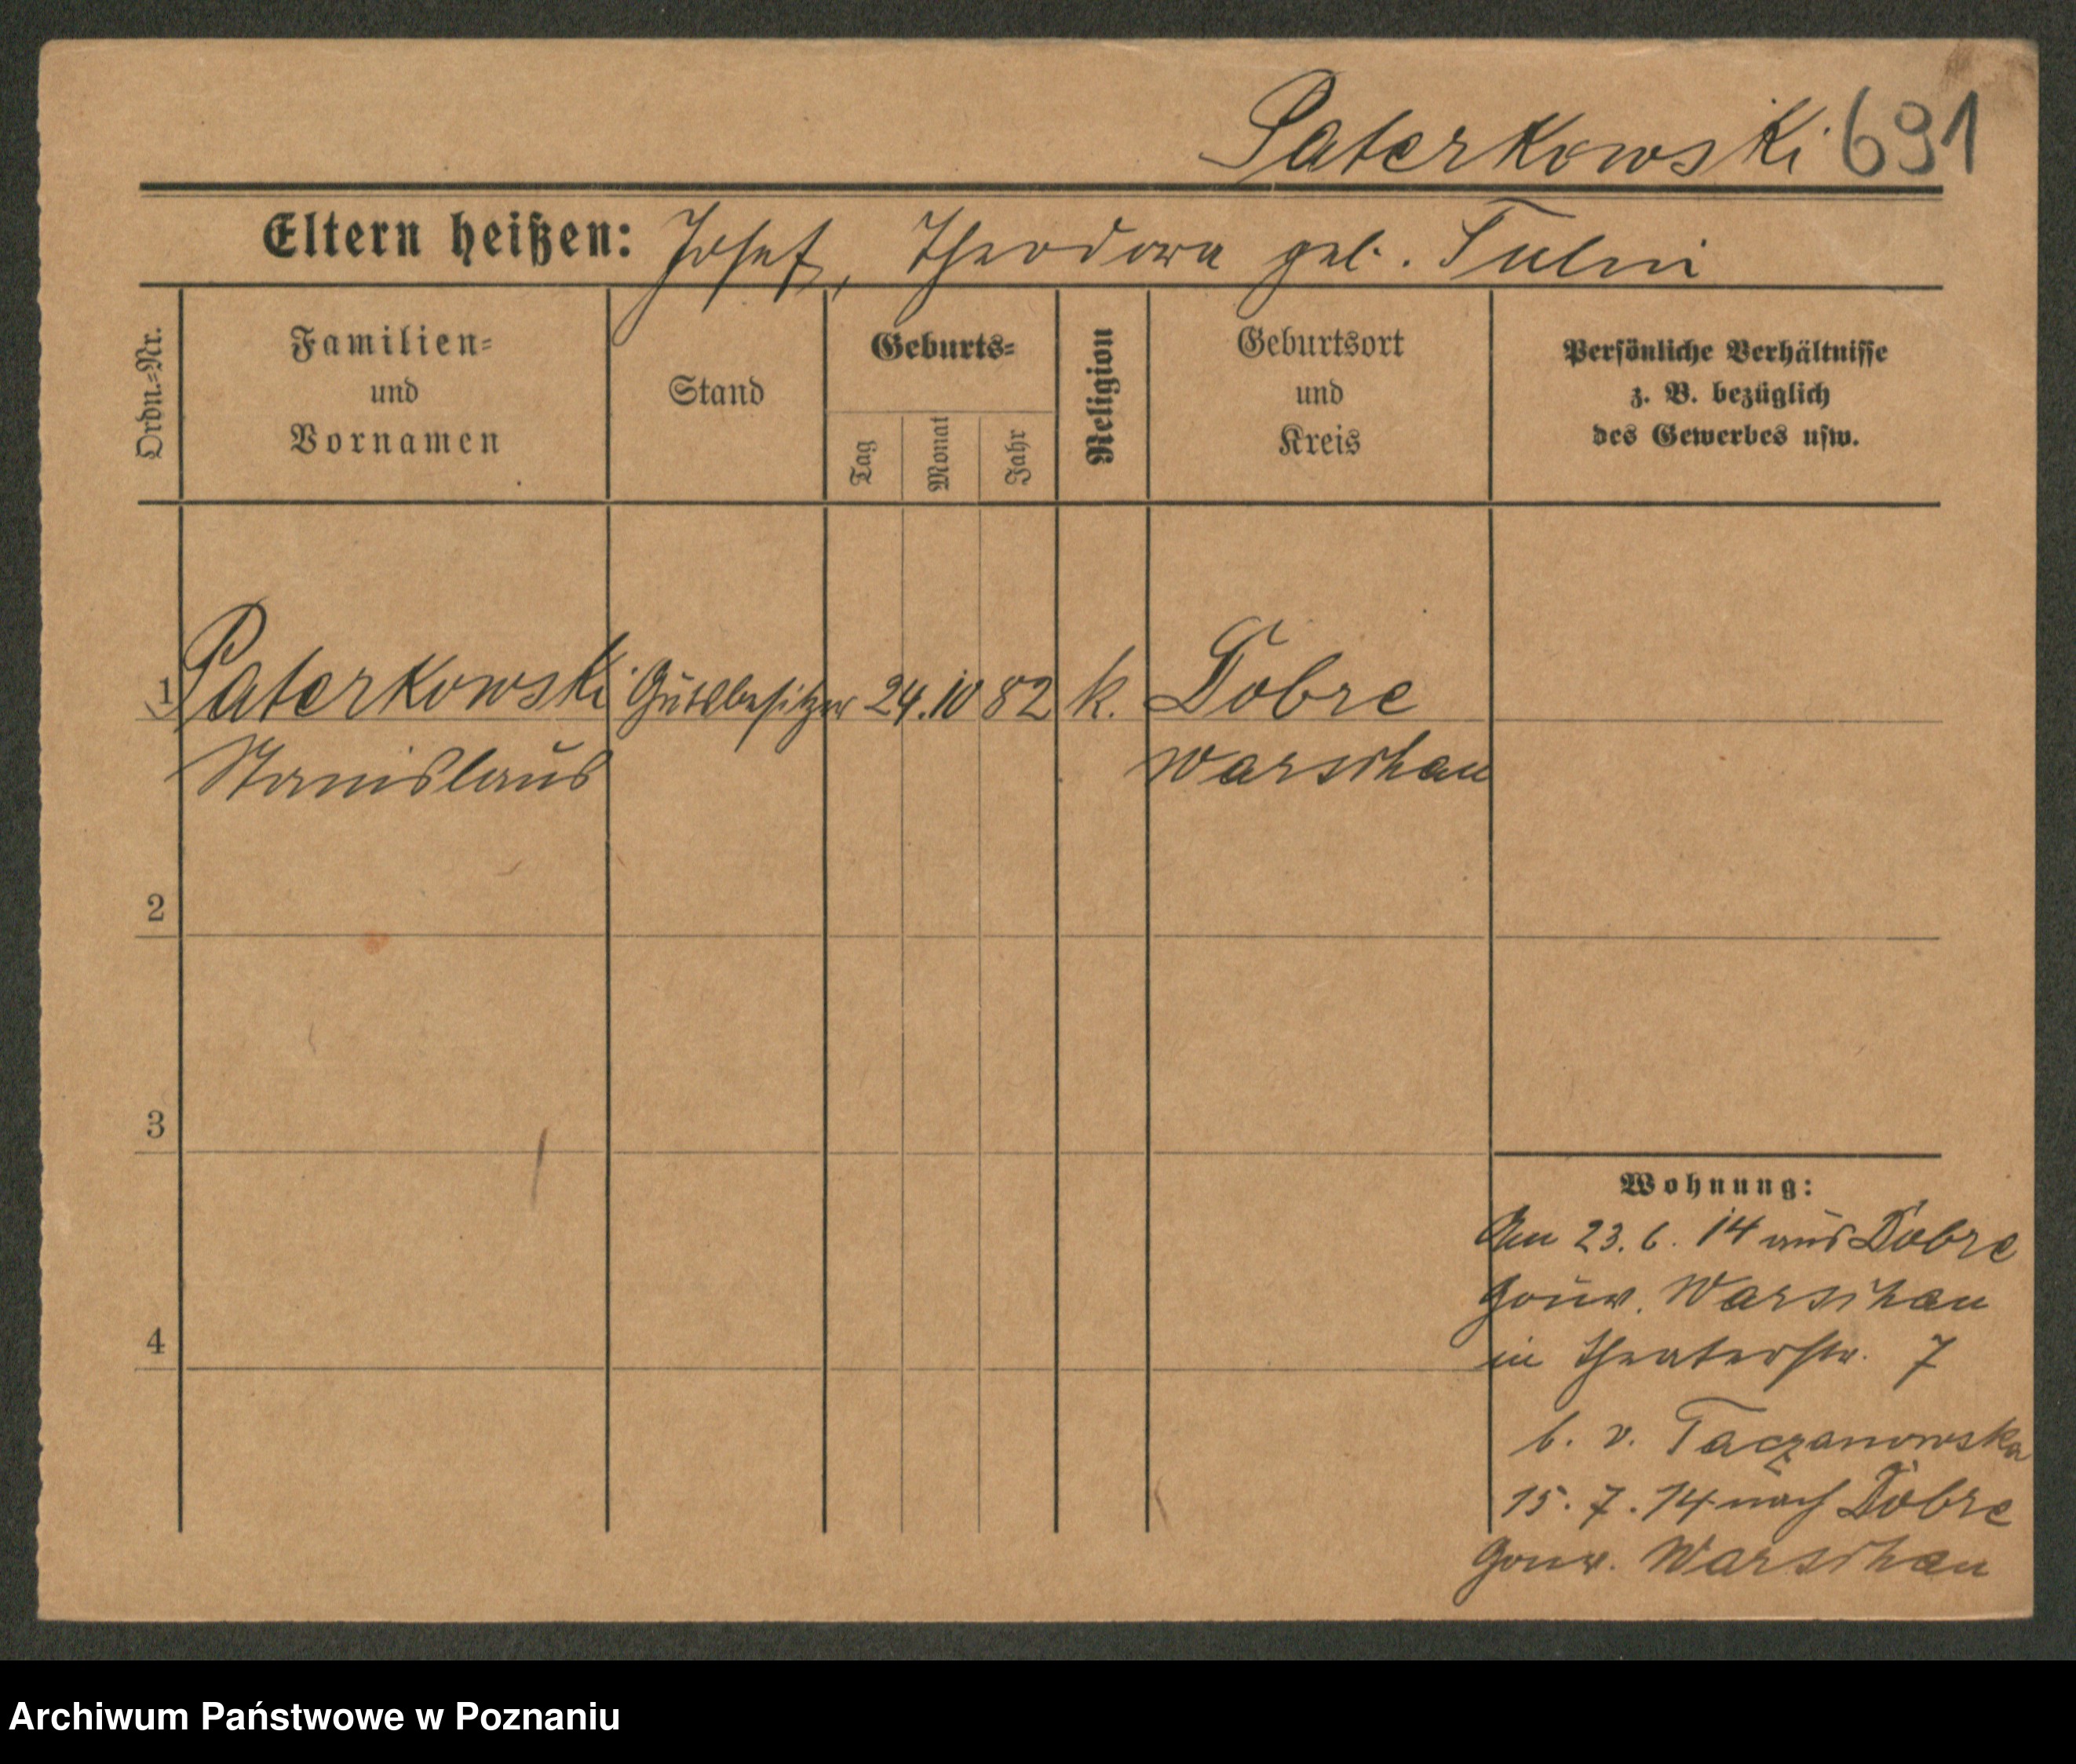 Paterkowski 691
Eltern heißen: Josef, Theodora geb. Tulni
Ordn.=Nr.
Familien=
und
Vornamen
Stand
Geburts=
Tag
Monat
Jahr
Religion
Geburtsort
und
Kreis
Persönliche Verhältnisse
z. B. bezüglich
des Gewerbes usw.
1 Paterkowski Gutsbesitzer 24. 10 82 k. Dobre
Stanislaus Warschau
2
3
4
Wohnung:
Am 23. 6. 14 aus Dobre
Gouv. Warschau
in Theaterstr. 7
b. v. Taczanowska
15. 7. 14 nach Dobre
Gouv. Warschau
Archiwum Państwowe w Poznaniu